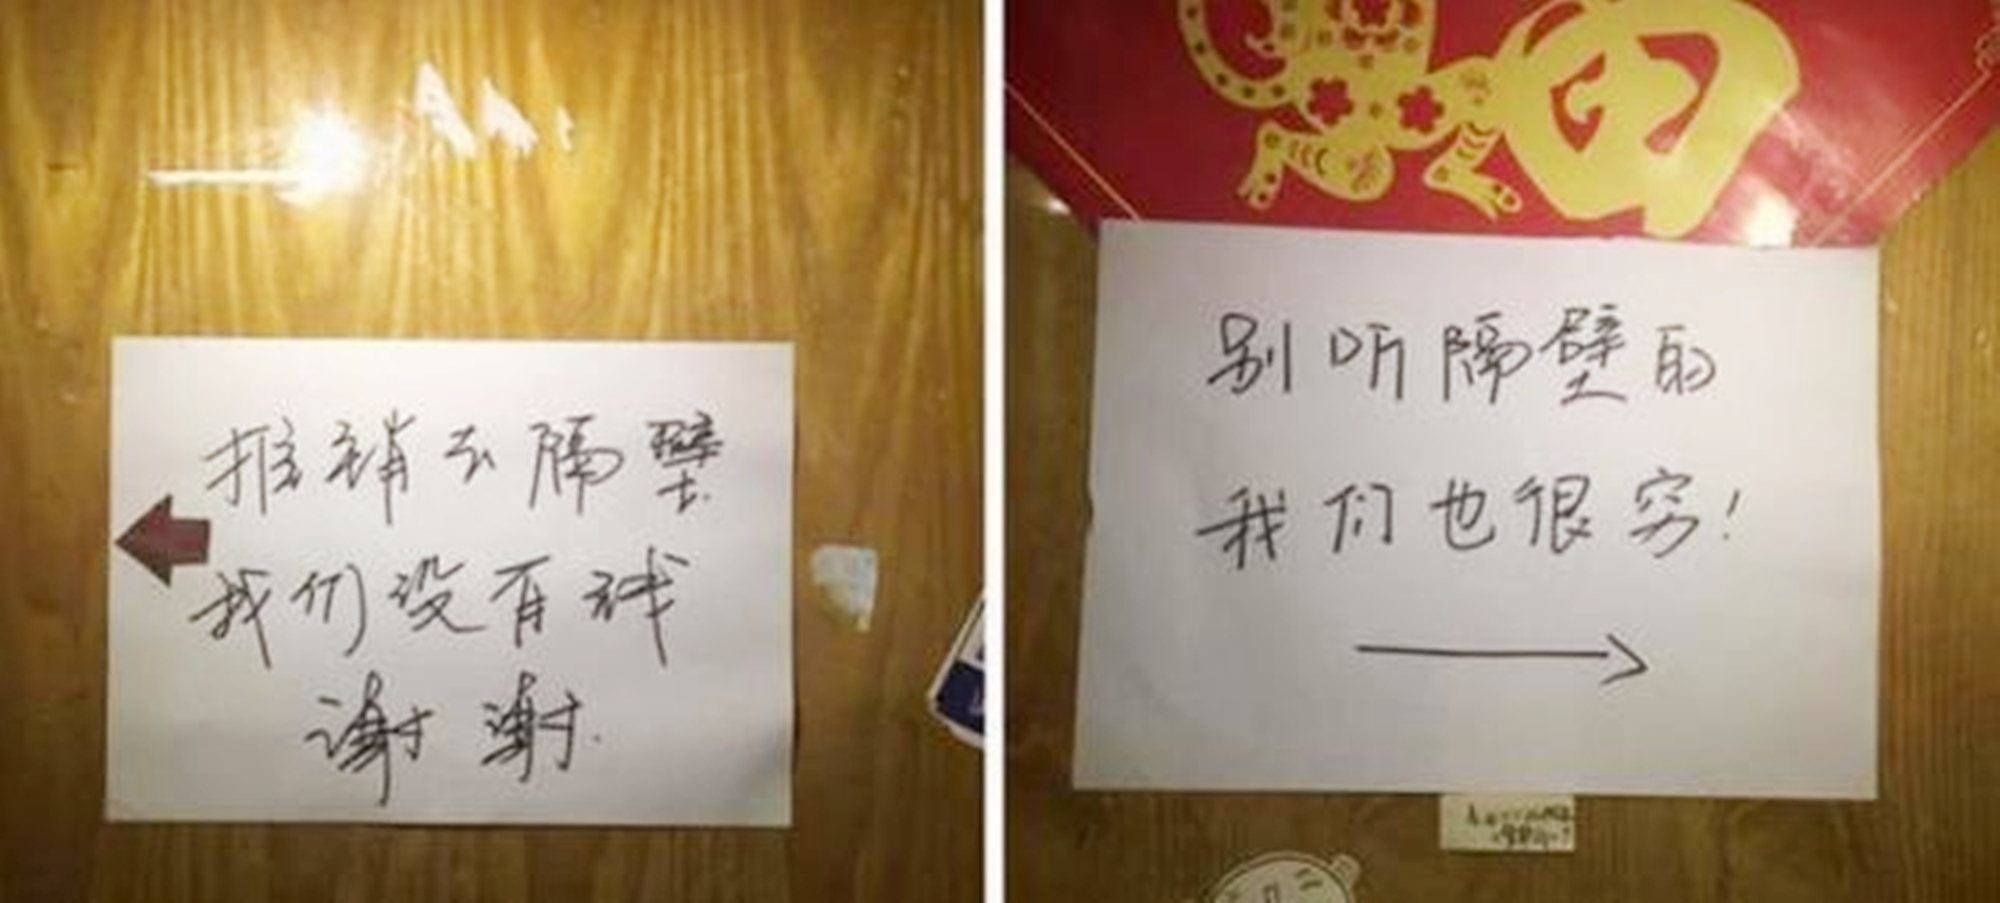 推销去隔壁
我们没有钱
谢谢.
别听隔壁的
我们也很穷!